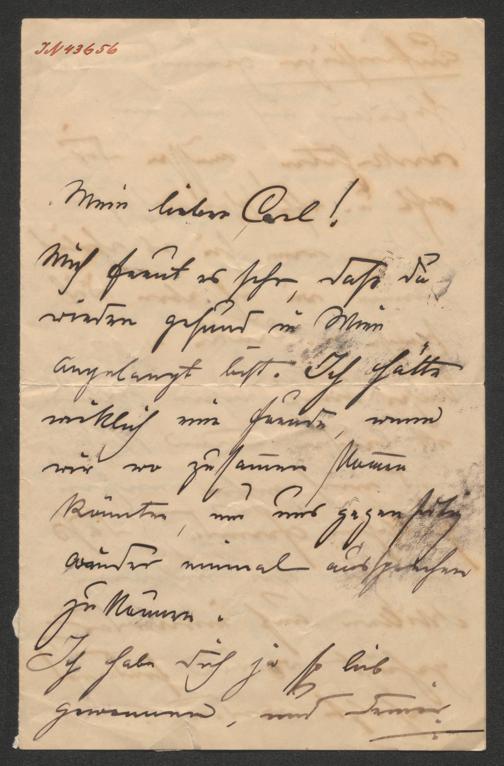 IN 43656
Mein lieber Carl!
Mich freut es sehr, daß du
wieder gesund in Wien
angelangt bist. Ich hätte
wirklich eine Freude, wenn
wir wo zusammen kommen
könnten, um uns gegenseitig
wieder einmal aussprechen
zu können.
Ich habe dich ja so lieb
gewonnen, und